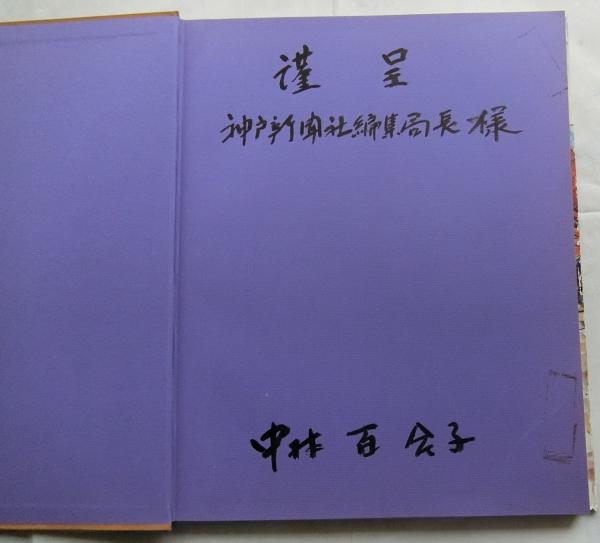 謹呈
神戸新聞社編集局長様
中林百合子